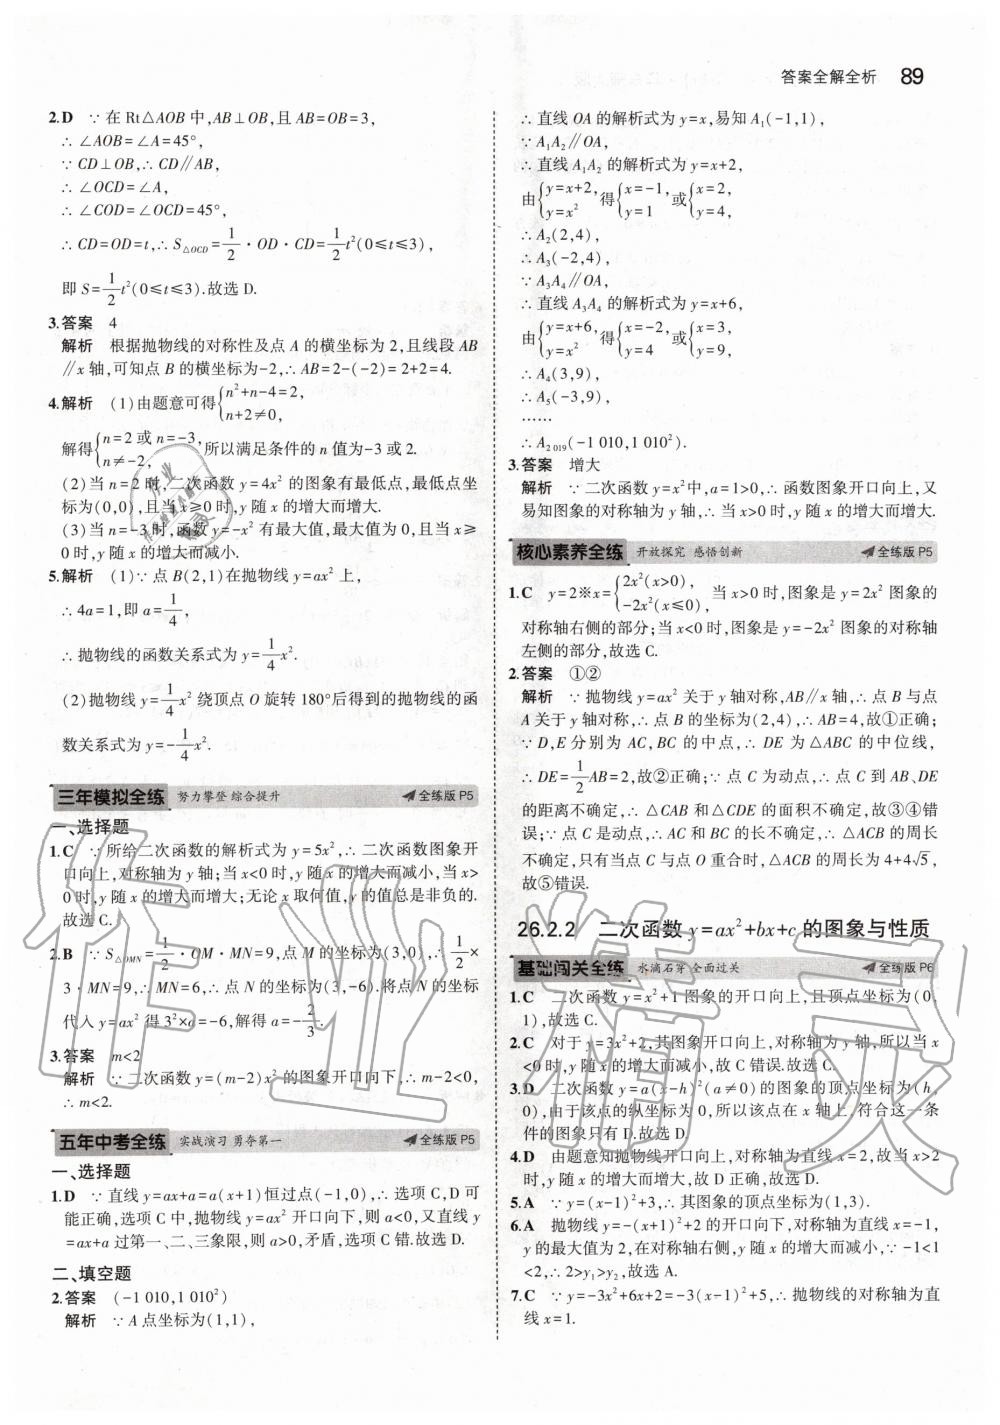 答案全解全析 89
2.D ∵在Rt△AOB中,AB⊥OB,且AB=OB=3,
∴∠AOB=∠A=45°,
∵CD⊥OB,∴CD∥AB,
∴∠OCD=∠A,
∴∠COD=∠OCD=45°,
∴CD=OD=t,∴S△OCD=1/2·OD·CD=1/2t²(0≤t≤3),
即S=1/2t²(0≤t≤3).故选D.
3.答案 4
解析 根据抛物线的对称性及点A的横坐标为2,且线段AB
∥x轴,可知点B的横坐标为-2,∴AB=2-(-2)=2+2=4.
4.解析 (1)由题意可得{n²+n-4=2,
n+2≠0,
解得{n=2或n=-3,
n≠-2,
所以满足条件的n值为-3或2.
(2)当n=2时,二次函数y=4x²的图象有最低点,最低点坐
标为(0,0),且当x>0时,y随x的增大而增大.
(3)当n=-3时,函数y=-x²有最大值,最大值为0,且当x≥
0时,y随x的增大而减小.
5.解析 (1)∵点B(2,1)在抛物线y=ax²上,
∴4a=1,即a=1/4,
∴抛物线的函数关系式为y=1/4x².
(2)抛物线y=1/4x²绕顶点O旋转180°后得到的抛物线的函
数关系式为y=-1/4x².
三年模拟全练 努力攀登 综合提升 全练版P5
一、选择题
1.C ∵所给二次函数的解析式为y=5x²,∴二次函数图象开
口向上,对称轴为y轴;当x<0时,y随x的增大而减小,当x>
0时,y随x的增大而增大;无论x取何值,y的值总是非负的.
故选C.
2.B ∵S△OMN=1/2·OM·MN=9,点M的坐标为(3,0),∴1/2×
3·MN=9,∴MN=6,∴点N的坐标为(3,-6).将点N的坐标
代入y=ax²得3²×a=-6,解得a=-2/3.
3.答案 m<2
解析 ∵二次函数y=(m-2)x²的图象开口向下,∴m-2<0,
∴m<2.
五年中考全练 实战演习 勇夺第一 全练版P5
一、选择题
1.D ∵直线y=ax+a=a(x+1)恒过点(-1,0),∴选项C,D可
能正确,选项C中,抛物线y=ax²开口向下,则a<0,又直线y
=ax+a过第一、二、三象限,则a>0,矛盾,选项C错.故选D.
二、填空题
2.答案 (-1 010,1 010²)
解析 ∵A点坐标为(1,1),
∴直线OA的解析式为y=x,易知A₁(-1,1),
∵A₁A₂∥OA,
∴直线A₁A₂的解析式为y=x+2,
由{y=x+2,
y=x²
得{x=-1,
y=1
或{x=2,
y=4,
∴A₂(2,4),
∴A₃(-2,4),
∵A₃A₄∥OA,
∴直线A₃A₄的解析式为y=x+6,
由{y=x+6,
y=x²
得{x=-2,
y=4
或{x=3,
y=9,
∴A₄(3,9),
∴A₅(-3,9),
……
∴A₂₀₁₉(-1 010,1 010²).
3.答案 增大
解析 ∵二次函数y=x²中,a=1>0,∴函数图象开口向上,又
易知图象的对称轴为y轴,∴当x>0时,y随x的增大而增大.
核心素养全练 开放探究 感悟创新 全练版P5
1.C y=2※x={2x²(x>0),
-2x²(x≤0),
当x>0时,图象是y=2x²图象的
对称轴右侧的部分;当x<0时,图象是y=-2x²图象的对称轴
左侧的部分,故选C.
2.答案 ①②
解析 ∵抛物线y=ax²关于y轴对称,AB∥x轴,∴点B与点
A关于y轴对称,∴点B的坐标为(2,4),∴AB=4,故①正确;
∵D,E分别为AC,BC的中点,∴DE为△ABC的中位线,
∴DE=1/2AB=2,故②正确;∵点C为动点,∴点C到AB、DE
的距离不确定,∴△CAB和△CDE的面积不确定,故③④错
误;∵点C是动点,∴AC和BC的长不确定,∴△ACB的周长
不确定,只有当点C与点O重合时,△ACB的周长为4+4√5,
故⑤错误.
26.2.2 二次函数y=ax²+bx+c的图象与性质
基础闯关全练 水滴石穿 全面过关 全练版P6
1.C 二次函数y=x²+1图象的开口向上,且顶点坐标为(0,
1),故选C.
2.C 对于y=3x²+2,其图象开口向上,对称轴为y轴,所以当x
<0时,y随x的增大而减小,故C错误.故选C.
3.D 二次函数y=a(x-h)²(a≠0)的图象的顶点坐标为(h,
0),由于该点的纵坐标为0,所以该点在x轴上,符合这一条
件的图象只有D.故选D.
4.D 由题意知抛物线开口向上,对称轴为直线x=2,故当x>2
时,y随x的增大而增大,故D正确,故选D.
5.A ∵y=(x-1)²+3,∴其图象的顶点坐标为(1,3).
6.A 抛物线y=-(x+1)²+2的开口向下,对称轴为直线x=-1,
y的最大值为2,在对称轴右侧,y随x的增大而减小,∵-1<1
<2,∴2>y₁>y₂,故选A.
7.C ∵y=-3x²+6x+2=-3(x-1)²+5,∴抛物线的对称轴为直
线x=1.
作业精灵